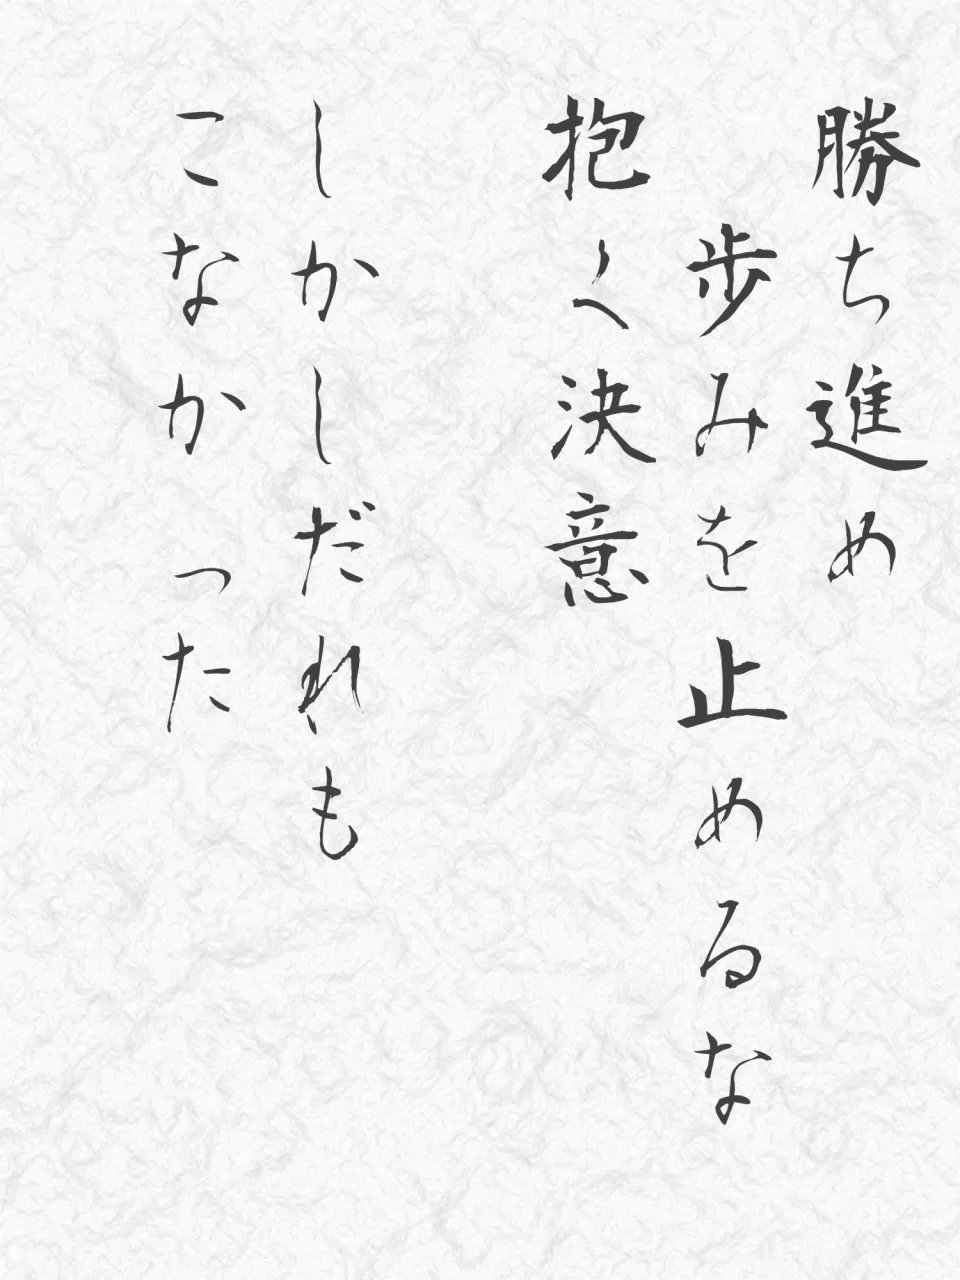 勝ち進め
歩みを止めるな
抱く決意
しかしだれも
こなかった